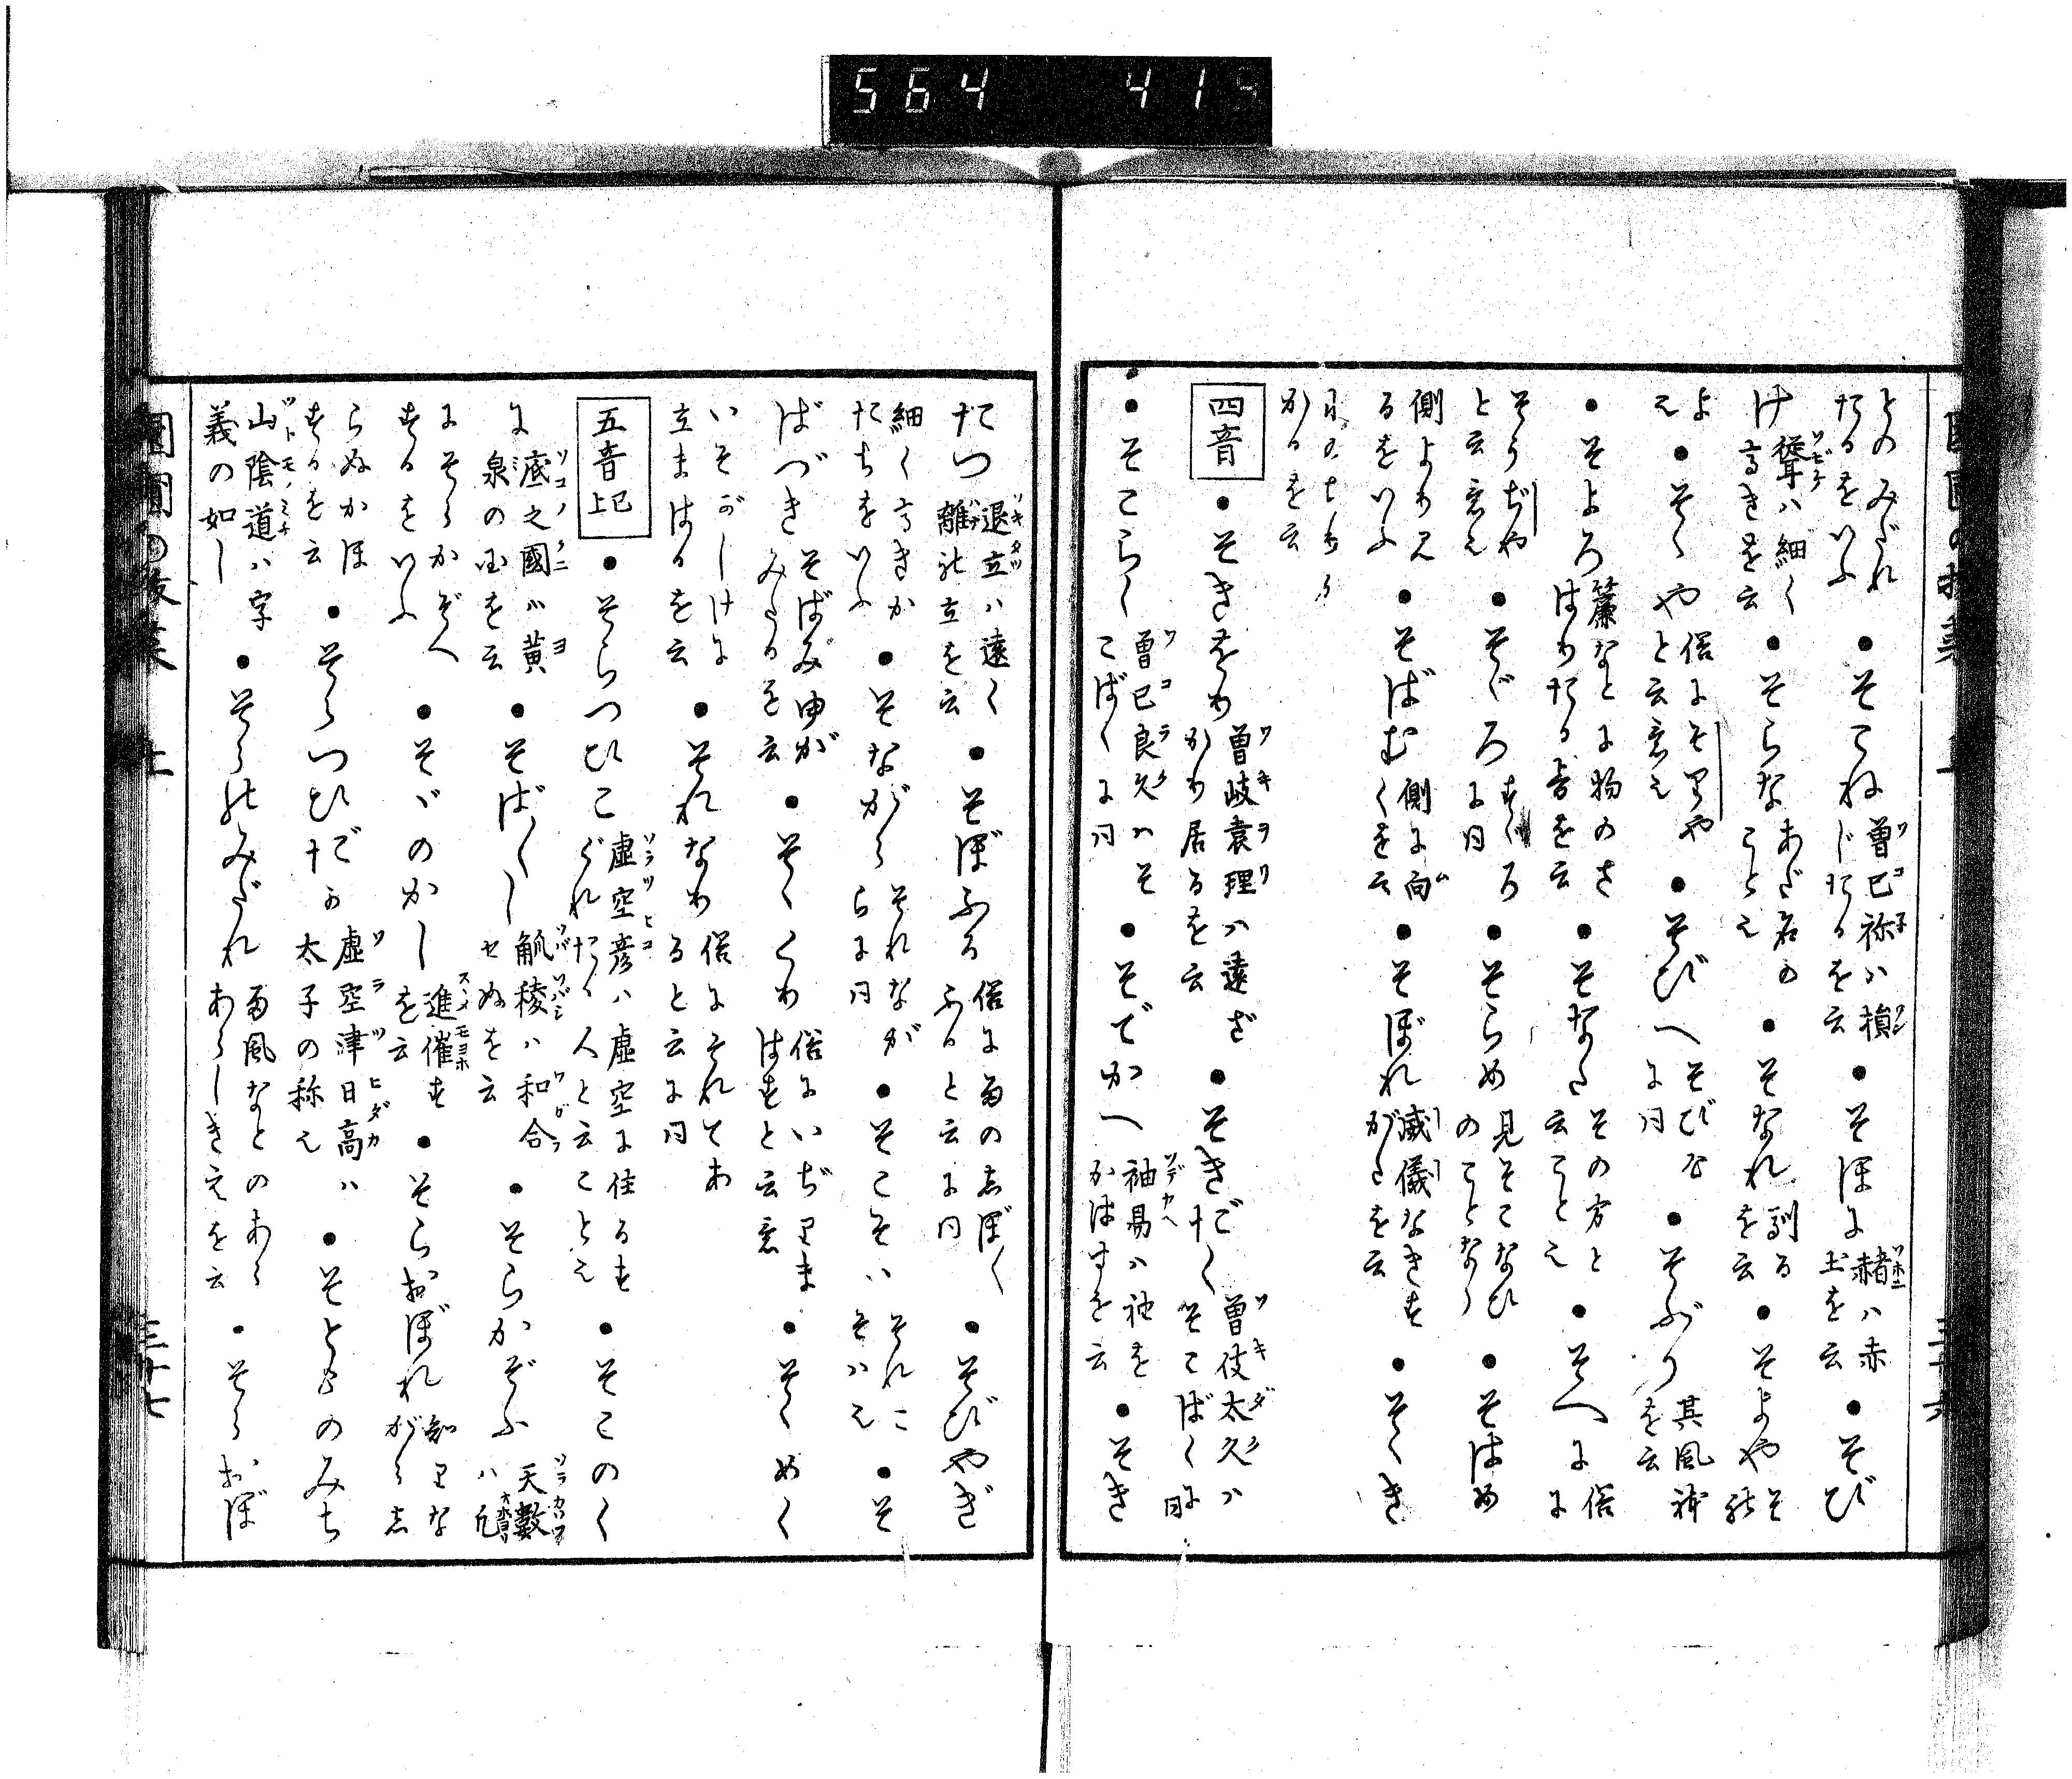 564 419
とのみだれたるをいふ ●そこね 曽己祢ハ損じたるを云 ●そほに 赭ハ赤土を云 ●そび
け 聳ハ細く高きを云 ●そらな あだ名のことえ ●そなれ 馴るを云 ●そよや そ
よ え ●そゝや 俗にそりややと云意え ●そびへ そびなに同 ●そぶり 其風を云
●そよろ 簾などに物のさはりたる音を云 ●そなた その方と云ことえ ●そへに 俗に
そうぢやと云意え ●そぞろ すゞろに同 ●そらめ 見そこなひのことなり ●そはめ
側よりみるをいふ ●そばむ 側に向くを云 ●そぼれ 威儀なきすがたを云 ●そゝき
かるを云
四音 ●そきをり 曽岐袁理ハ遠ざかり居るを云 ●そきだく 曽伎太久ハそこばくに同
●そこらく 曽己良久ハそこばくに同 ●そでかへ 袖易ハ袖をかはすを云 ●そき
たつ 退立ハ遠く離れ立を云 ●そぼふる 俗に雨のしぼ〱ふると云に同 ●そびやぎ
細く高きかたちをいふ ●そながら それながらに同 ●そこそハ それこそハえ ●そ
ばづき そばみゆがみたるを云 ●そゝくり 俗にいぢりまはすと云意 ●そゝめく
いそがしげに立まはるを云 ●それなり 俗にそれであると云に同
五音上已 ●そらつひこ 虚空彦ハ虚空に住るすぐれたる人と云ことえ ●そこのく
に 底之國ハ黄泉の国を云 ●そば〱し 觚稜ハ和合せぬを云 ●そらかぞふ 天數ハ凡
にそらかぞへするをいふ ●そゝのかし 進催すを云 ●そらおぼれ 知りながらし
らぬかほするを云 ●そらつひだか 虚空津日高ハ太子の称え ●そとものみち
山陰道ハ字義の如し ●そらのみだれ 雨風などのあらあらしきえを云 ●そらおぼ
三十七